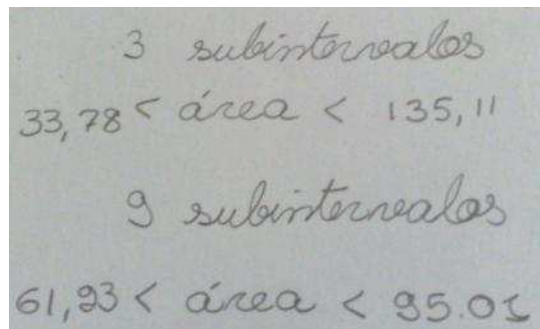 3 subintervalos
33,78 < área < 135,11
9 subintervalos
61,93 < área < 95.01